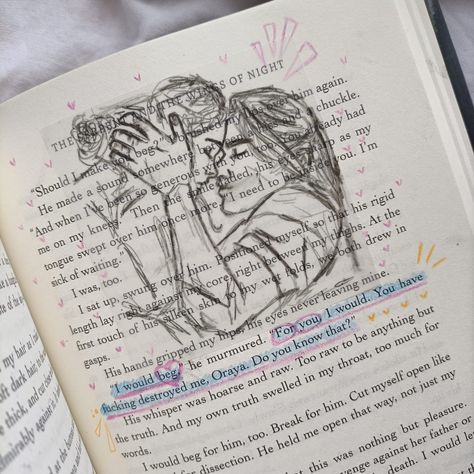 THE AND THE WINGS OF NIGHT
"Should I make you beg?" I him again.
He made a sound somewhere chuckle.
"And when I've been so generous with you, too. had
me on my knees." Then the smile faded, his eyes sharp as my
tongue swept over him once more. "I need to be inside you. I'm
sick of waiting."
I was, too.
I sat up, swung over him. Positioned myself so that his rigid
length lay right against my core, right between my thighs. At the
first touch of his silken skin to my wet folds, we both drew in
gasps.
His hands gripped my hips, his eyes never leaving mine.
"I would beg," he murmured. "For you, I would. You have
fucking destroyed me, Oraya. Do you know that?"
His whisper was hoarse and raw. Too raw to be anything but
the truth. And my own truth swelled in my throat, too much for
words.
I would beg for him, too. Break for him. Cut myself open like
for dissection. He held me open that way, not just my
that this was nothing but pleasure.
enge against her father or
my hair at
oft dark hair to
the thick, and
dmirably against